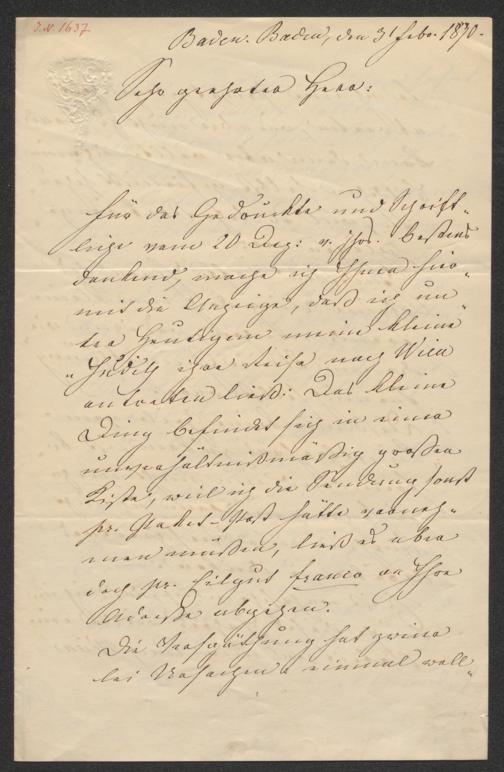 I.N. 1637
Baden-Baden, den 3t Febr. 1870.
Sehr geehrter Herr:
Für das Gedruckte und Schrift-
liche vom 20 Dez: v. Jhrs. bestens
dankend, mache ich Ihnen hier-
mit die Anzeige, daß ich un-
ter Heutigem meine kleine
„Judith ihre Reise nach Wien
antreten ließ: Das kleine
Ding befindet sich in einer
unverhältnißmäßig großen
Kiste, weil ich die Sendung sonst
pr. Paket-Post hätte vorneh-
men müßen, ließ es aber
doch pr. Eilgut franco an Ihre
Adresse abgehen.
Die Verspäthung hat zweier
lei Ursachen: einmal woll-